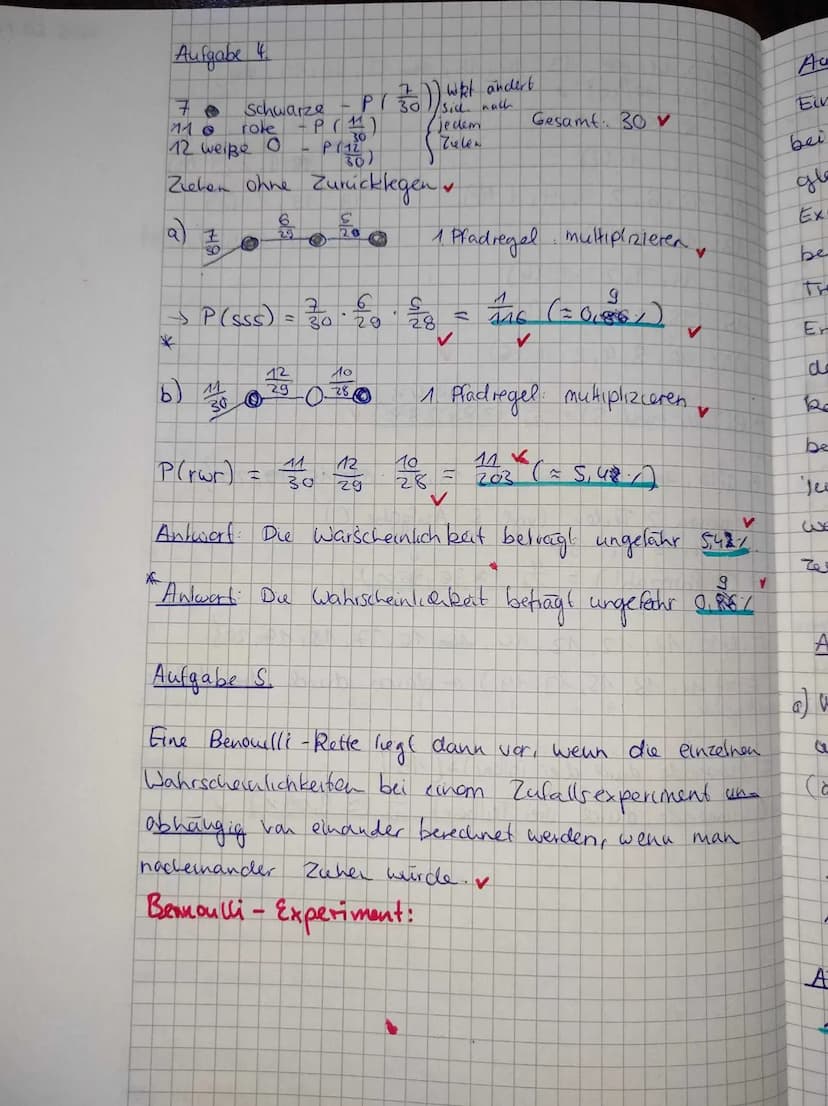 Aufgabe 4.
7 schwarze - P(7/30) } wkt ändert
11 rote - P(11/30) } sich nach
12 weiße O - P(12/30) } jedem
Ziehen
Gesamt: 30 ✓
Ziehen ohne Zurücklegen ✓
a) 7/30 6/29 5/28 1 Pfadregel: multiplizieren ✓
→ P(sss) = 7/30 · 6/29 · 5/28 = 1/116 (≈ 0,9%) ✓
*
b) 11/30 12/29 10/28 1 Pfadregel: multiplizieren ✓
P(rwr) = 11/30 · 12/29 · 10/28 = 11/203 (≈ 5,42%)
Antwort: Die Warscheinlichkeit beträgt ungefähr 5,42% ✓
* Antwort: Die Wahrscheinlichkeit beträgt ungefähr 0,9% ✓
Aufgabe 5.
Eine Benoulli-Kette liegt dann vor, wenn die einzelnen
Wahrscheinlichkeiten bei einem Zufallsexperiment un-
abhängig von einander berechnet werden, wenn man
nacheinander ziehen würde. ✓
Bernoulli - Experiment: